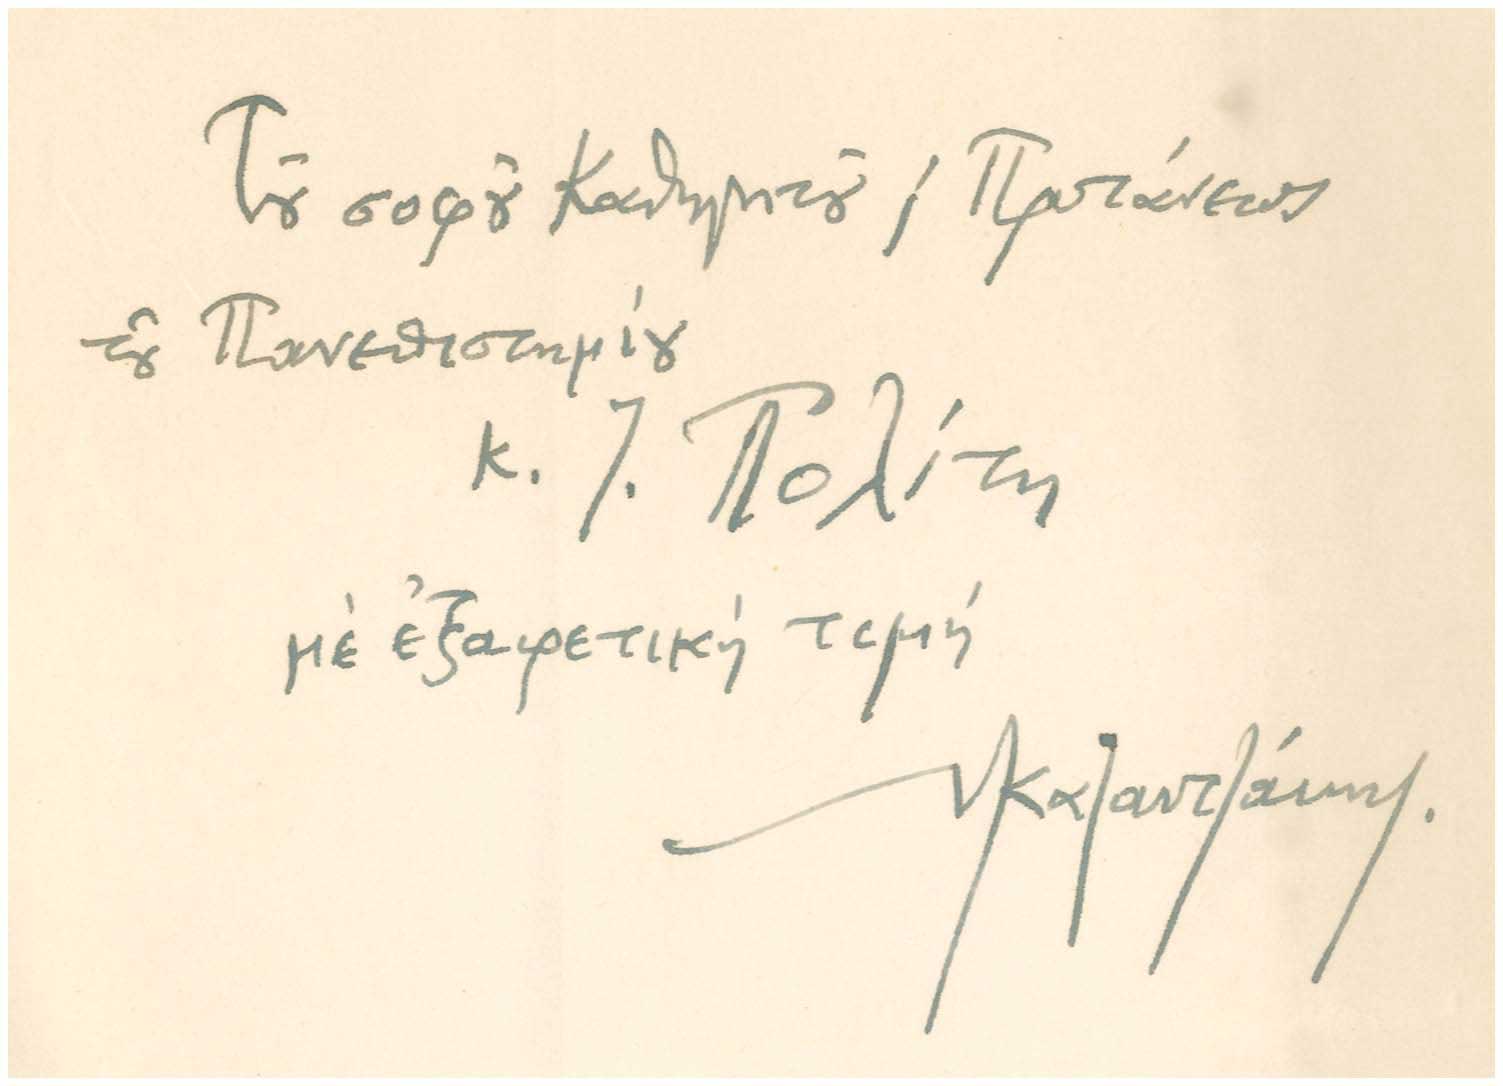 Τοῦ σοφοῦ Καθηγητοῦ, Πρυτάνεως
τοῦ Πανεπιστημίου
κ. Ι. Πολίτη
μὲ ἐξαιρετική τιμή
Ν Καζαντζάκης.